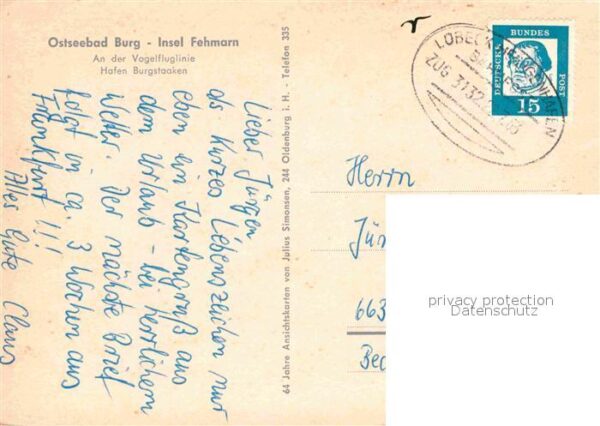 Ostseebad Burg - Insel Fehmarn
An der Vogelfluglinie
Hafen Burgstaaken
Lieber Jürgen!
als kurzes Lebenszeichen nur
eben ein Kartengruß aus
dem Urlaub - bei herrlichem
Wetter. Der nächste Brief
folgt in ca. 3 Wochen aus
Frankfurt!!!
Alles Gute Claus
64 Jahre Ansichtskarten von Julius Simonsen, 244 Oldenburg i. H. - Telefon 335
LÜBECK
ZUG 3132
DEUTSCHE BUNDES POST
15
Herrn
Jür
663
Bec
privacy protection
Datenschutz